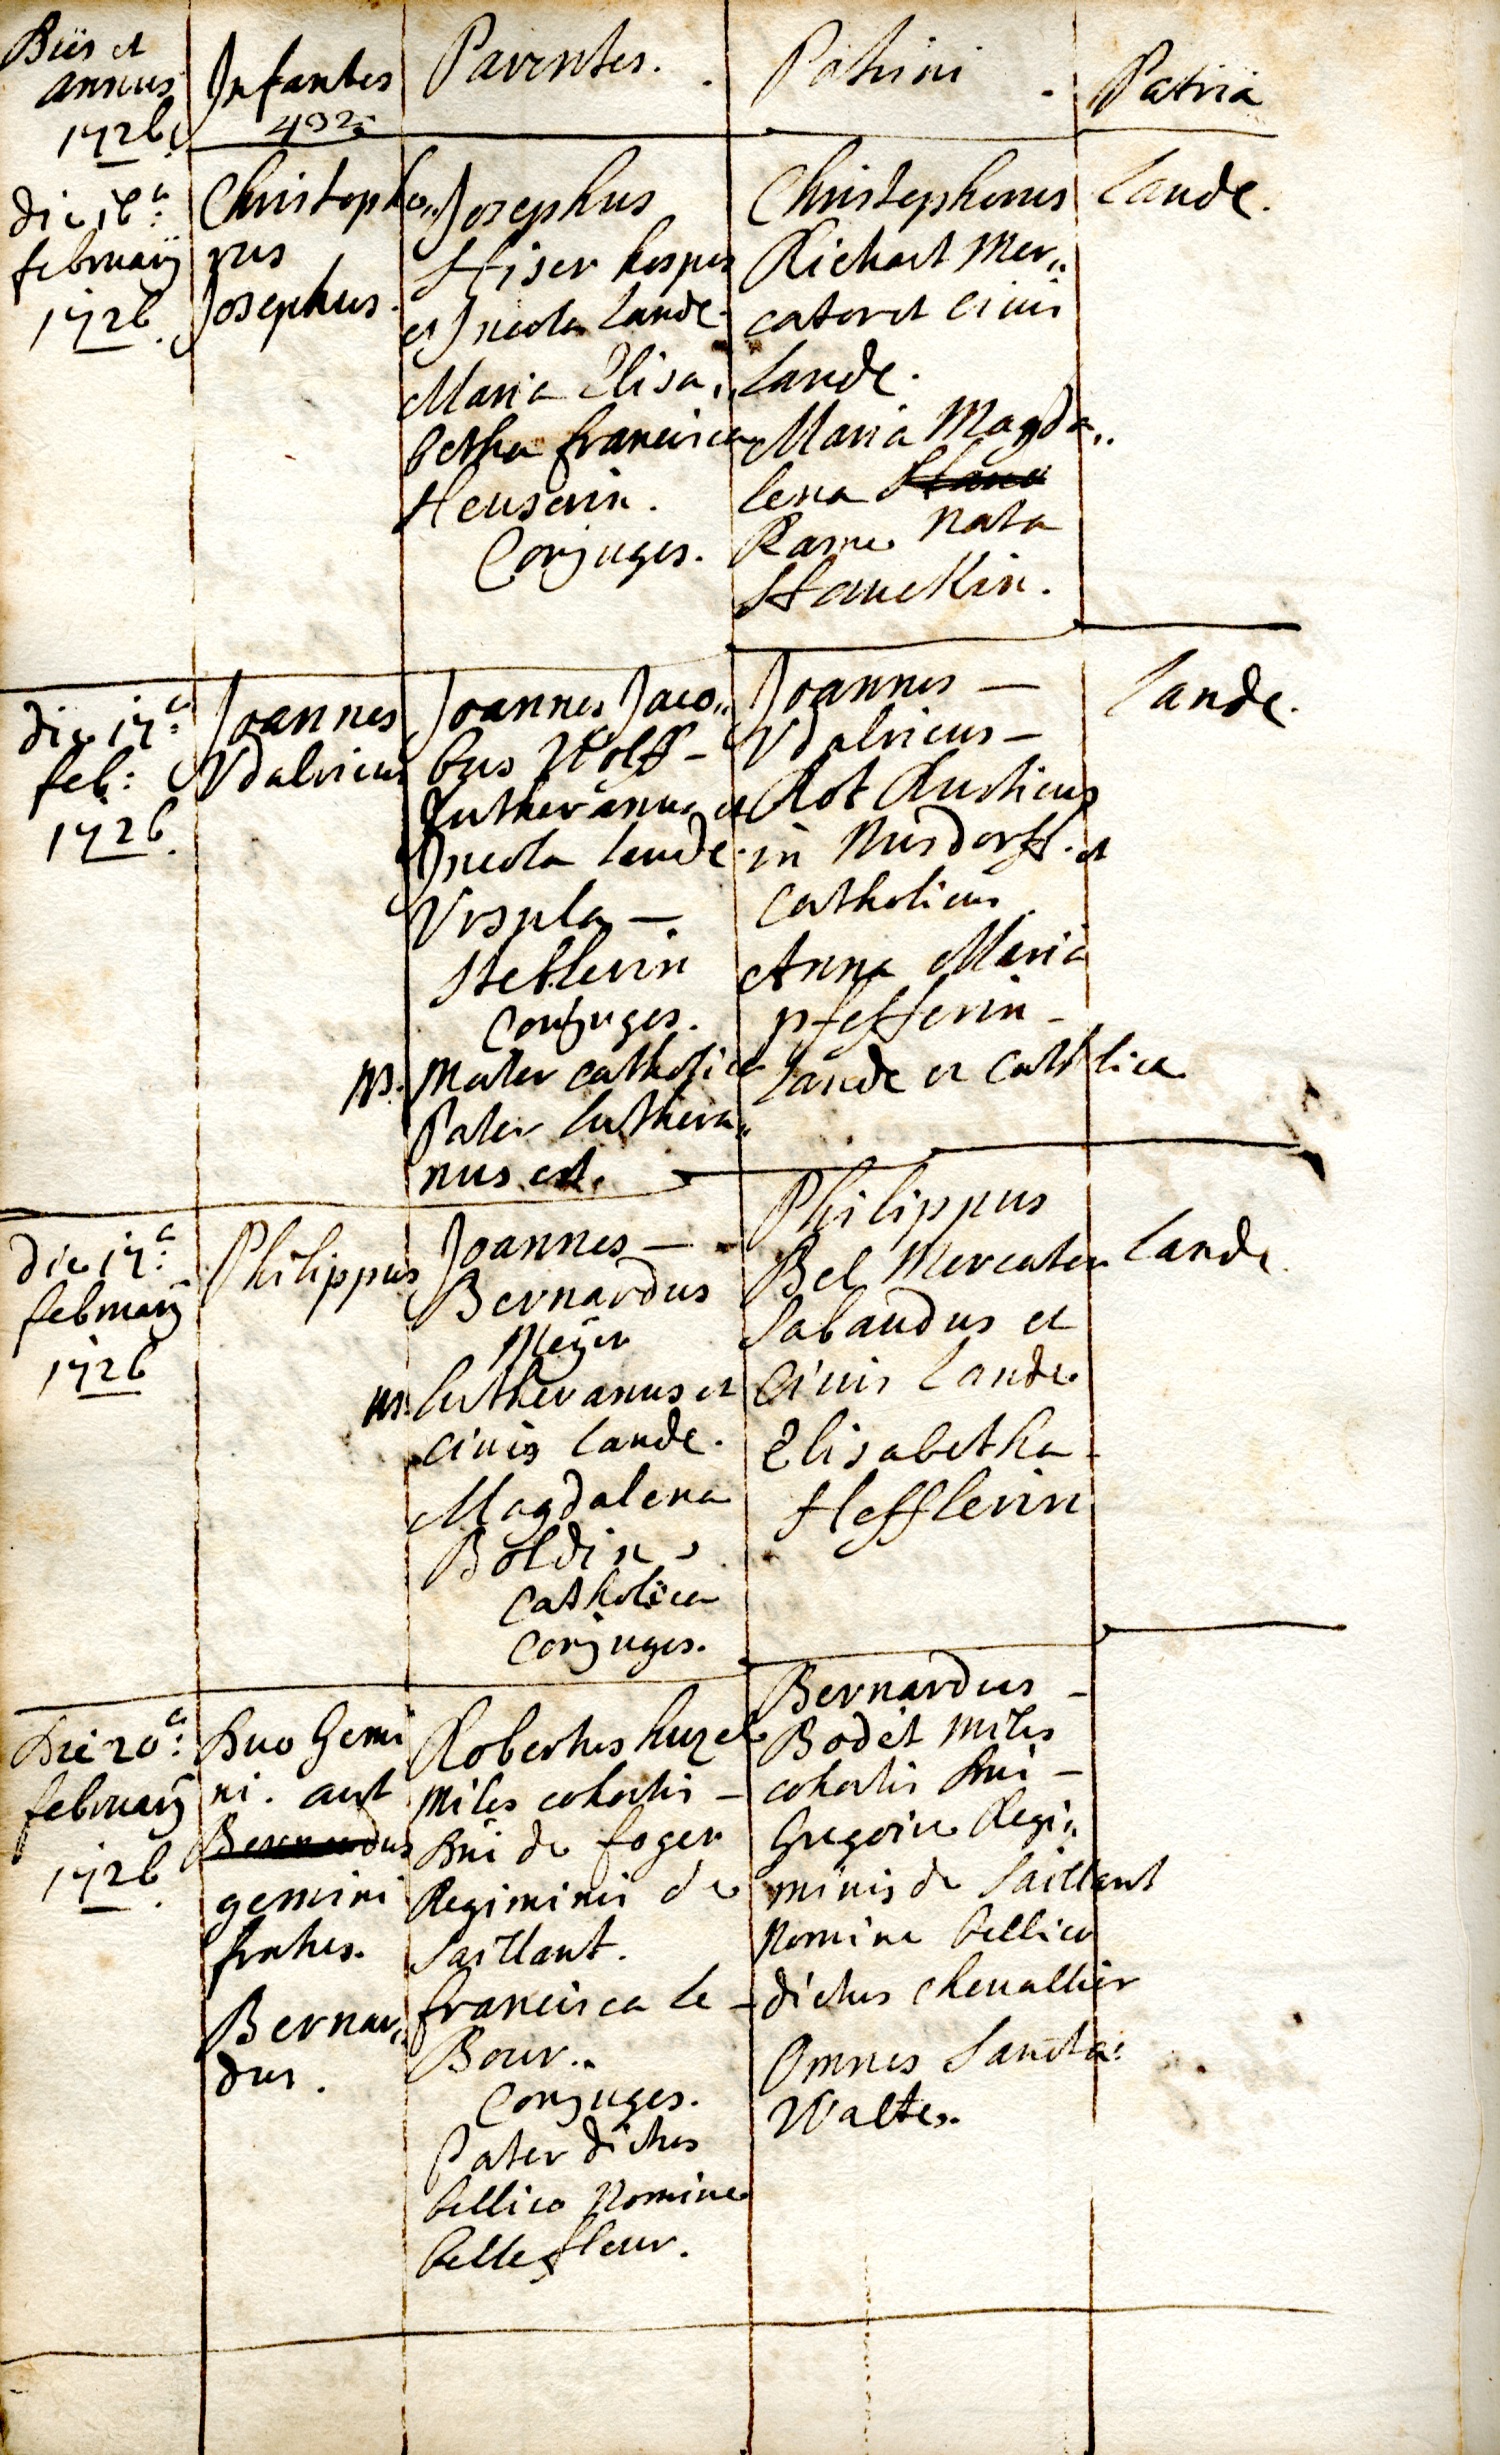 Dies et
annus
1726.
Infantes
402
Parentes.
Patrini
Patria
die 16a:
februarÿ
1726.
Christopho„
rus
Josephus.
Josephus
Hiser hospes
et Incola landæ.
Maria Elisa„
betha francisca
Heuserin.
Conjuges.
Christophorus
Richart Mer„
cator et civis
landæ.
Maria Magda„
lena
Rame nata
Hauckin.
landæ.
die 17a:
feb:
1726.
Joannes
Vdalricus
Joannes Jaco„
bus Wolff –
lutheranus et
Incola landæ.
Vrsula –
Steblerin
Conjuges.
NB. Mater catholica
Pater luthera„
nus est.
Joannes –
Vdalricus –
Rot Rusticus
in Nusdorff. et
catholicus
Anna Maria
pfefferin –
landæ et catholica
landæ.
die 17a:
februarÿ
1726
Philippus
Joannes –
Bernardus
Meÿer
NB. lutheranus et
civis landæ.
Magdalena
Boldin
catholica
conjuges.
Philippus
Bel Mercator
Sabaudus et
Civis landæ
Elisabetha
Hefflerin
landæ
Die 20a:
februarÿ
1726.
Duo Gemi
ni. aut
Bernardus
gemini
fratres.
Bernar„
dus.
Robertus huzel
Miles cohortis –
Dni de foger
Regiminis de
Saillant.
francisca le –
Bour..
Conjuges.
Pater dictus
bellico Nomine
bellefleur.
Bernardus –
Bodet Miles
cohortis Dni –
Gregoire Regi„
minis de Saillant
Nomine bellico
dictus chevallier
Omnes Sancta:
Waltes.